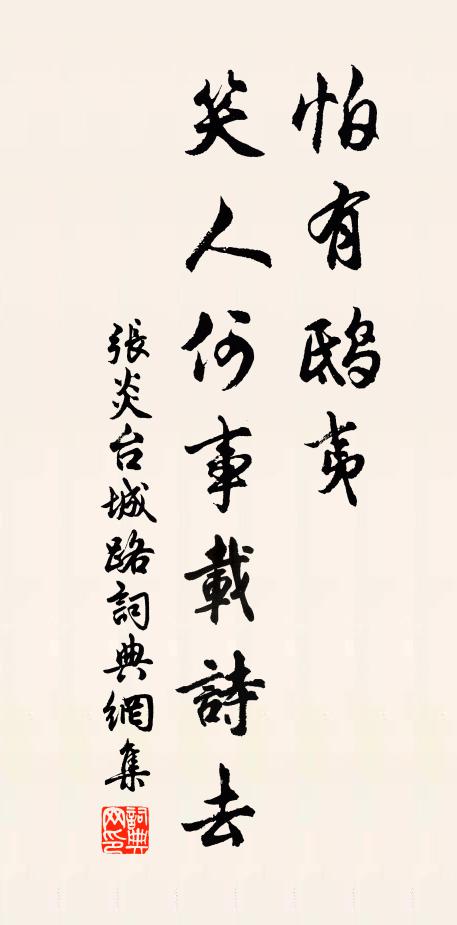 怕有鴟夷
笑人何事載詩去
張炎台城路詞典網集
詞典網印